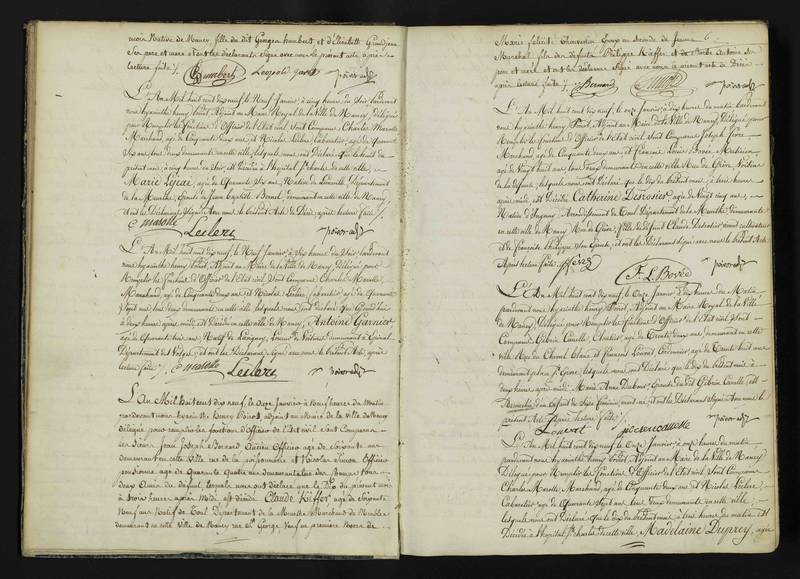 Native de Nancy, fille du dit George humbert, et d'Elisabeth Grandjean
Ses pere et mere et ont les declarants Signé avec nous le présent acte après
lecture faite
Humbert Leopold poirot adjt
L'An Mil huit cent dix neuf, le Neuf Janvier, à cinq heures du Soir pardevant
nous hyacinthe henry Poirot, Adjoint au Maire Royal de la Ville de Nancy, délégué
pour Remplir les fonctions d'Officier de l'Etat civil, Sont Comparus Charles Masotte
Marchand, agé de Cinquante deux ans, et Nicolas Leclerc, Cabaretier, agé de Quarante
Sept ans, tous deux demeurants en cette ville, lesquels nous ont Déclaré que le huit du
présent mois, à cinq heures du Soir, est Décédée à l'hopital St. charles de cette ville,
Marie Lejeai, agée de Quarante Six ans, Native de Luneville, Département
de la Meurthe, Epouse de Jean Baptiste demeurant en cette ville de Nancy,
et ont les Déclarants Signé avec nous le présent Acte de Décès, après lecture faite
C masotte
Leclerc poirot adjt
L'An Mil huit cent dix neuf, le Neuf Janvier, à Six heures du Soir pardevant
nous hyacinthe henry Poirot, Adjoint au Maire de la Ville de Nancy, Délégué pour
Remplir les fonctions d'Officier de l'Etat civil, Sont Comparus Charles Masotte,
Marchand, agé de Cinquante deux ans, et Nicolas Leclerc, Cabaretier, agé de Quarante
Sept ans, tous deux demeurants en cette ville lesquels nous ont Déclaré que
à deux heures après midi, est Décédé en cette ville de Nancy, Antoine Garnier
agé de Quarante huit ans, Natif de demeurant à Epinal
Département des Vosges, et ont les Déclarants Signé avec nous le présent Acte, après
lecture faite
C masotte Leclerc poirot adjt
L'an Mil huit cent dix neuf, le onze Janvier à Neuf heures du Matin
pardevant nous hyacinthe Henry Poirot, adjoint au Maire de la Ville de Nancy
délégué pour remplir les fonctions d'Officier de l'Etat civil Sont Comparus
les Sieurs Jean Joseph Bernard Ancien Officier agé de Soixante ans
demeurant en cette Ville rue de la poissonnerie et Nicolas Simon Officier
pensionné, agé de Quarante Quatre ans demeurant
deux Amis du défunt, lesquels nous ont déclaré que le Dix du présent mois
à trois heures après Midi est décédé Claude Kiffer agé de Soixante
Neuf ans Natif de Toul Département de la Meurthe Marchand de Meubles
demeurant en cette Ville de Nancy rue St. George Veuf en premieres Noces de
Marie félicité Epoux en Seconde de Jeanne 6
Marchal fils des défunts Philippe Kieffer et de Barbe Antoine Ses
pere et mere et ont les déclarants Signé avec nous le présent acte de Décès
après lecture faite
J J Bernard Simon poirot adjt
L'An Mil huit cent dix neuf, le onze Janvier, à dix heures du matin pardevant
nous hyacinthe henry Poirot, Adjoint au Maire de la Ville de Nancy, Délégué pour
Remplir les fonctions d'Officier de l'Etat civil, Sont Comparus Joseph
Marchand, agé de Cinquante ans, et françois Louis Bovée Musicien,
agé de Vingt huit ans, tous deux demeurants en cette ville Rue de Grève, Voisins
de la défunte, lesquels nous ont Déclaré que le dix du présent mois, à heure
après midi, est Décédée Catherine Desrosier, agée de Vingt cinq ans,
Native d'Ingney, Arrondissement de Toul Département de la Meurthe, demeurante
en cette ville de Nancy Rue de Grève, fille de défunt Claude Desrosier vivant cultivateur
et de françoise Son Epouse, et ont les Déclarants Signé avec nous le présent Acte,
Après lecture faite
F. L. Bovée poirot adjt
L'An Mil huit cent dix neuf, le onze Janvier heures du Matin
pardevant nous hyacinthe henry Poirot, Adjoint au Maire Royal de la Ville
de Nancy, Délégué pour Remplir les fonctions d'Officier de l'Etat civil, Sont
Comparus Gabrie Canelle, agé de Trente deux ans, demeurant en cette
ville Rue du Cheval blanc et francois Louvert, Cordonnier, agé de Trente huit ans
demeurant place lesquels nous ont Déclaré que le dix du présent mois à
deux heures après midi, Marie Anne Duchene, Epouse du dit Gabrie Canelle, est
Accouchée d'un Enfant du Sexe féminin, mort né, et ont les Déclarants Signé Avec nous le
présent Acte, Après lecture faite
Louvert canelle poirot adjt
L'An Mil huit cent dix neuf le onze Janvier, à onze heures du matin
pardevant nous hyacinthe henry Poirot, Adjoint au Maire de la Ville de Nancy
Délégué pour Remplir les fonctions d'Officier de l'Etat civil, Sont Comparus
Charles Masotte, Marchand, agé de Cinquante deux ans, et Nicolas Leclerc,
Cabaretier, agé de Quarante Sept ans, tous deux demeurants en cette ville,
lesquels nous ont Déclaré que le dix du présent mois, à heures du matin est
Décédée à l'hopital St. charles de cette ville, Madelaine Duprey, agée